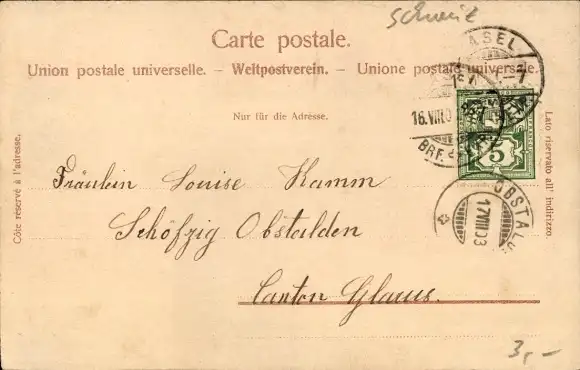 Schweiz
Carte postale.
Union postale universelle. – Weltpostverein. – Unione postale universale.
Nur für die Adresse.
Côte réservé à l'adresse.
Lato riservato all' indirizzo.
BASEL
16.VIII.0
BRF.
5
OBSTALDEN
17 VIII 03
Fräulein Louise Kamm
Schöfzig Obstalden
Canton Glarus.
3,–